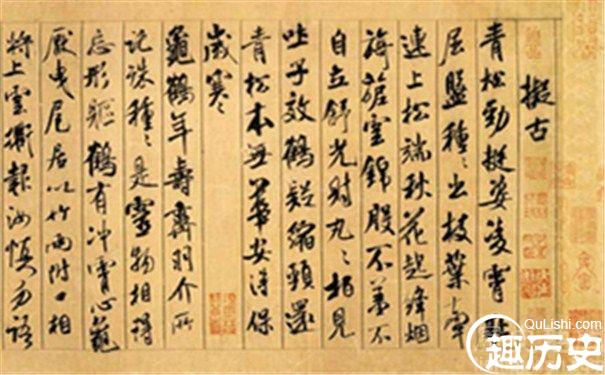 擬古
青松勁挺姿凌霄恥
屈盤種〻出枝葉牽
連上松端秋花起絳烟
旖旎雲錦殷不羞不
自立舒光射丸〻柏見
吐子效鶴疑縮頸還
青松本無華安得保
歲寒
龜鶴年壽齊羽介所
託殊種〻是靈物相得
忘形軀鶴有沖霄心龜
厭曳尾居以竹兩附口相
將上雲衢報汝慎勿語
QuLishi.com
趣历史